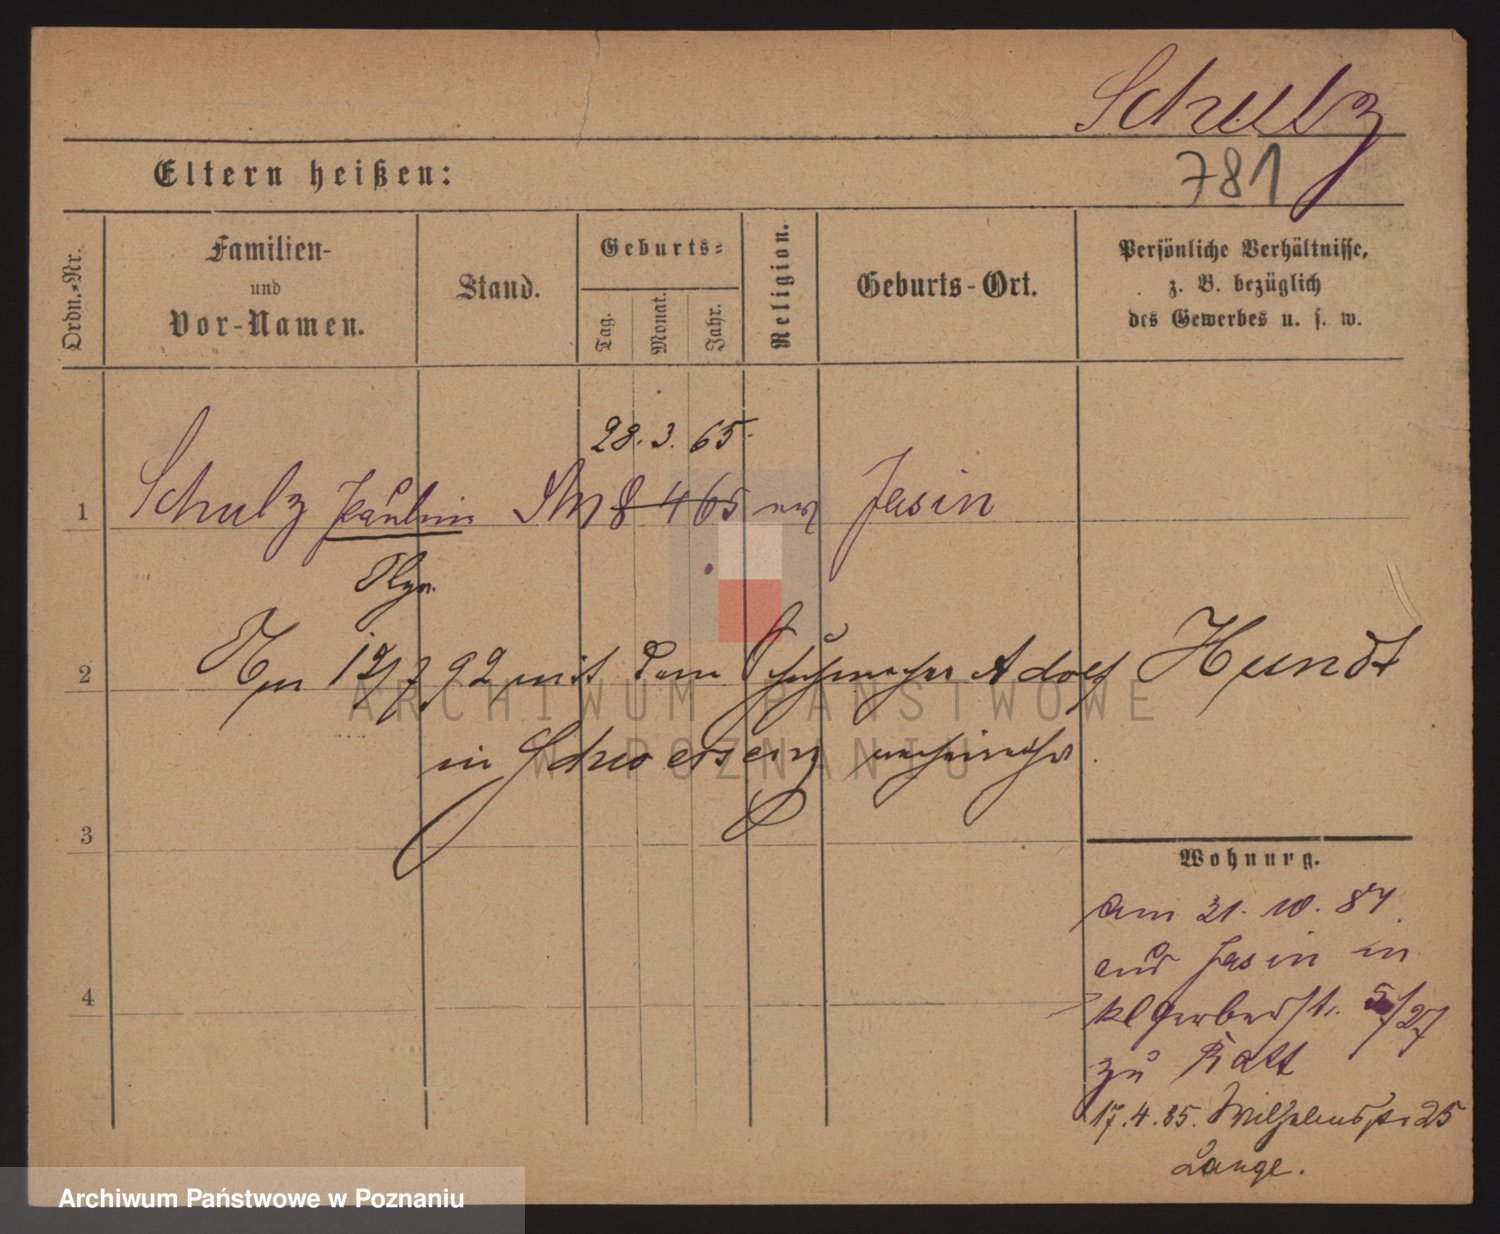 Schulz
781
Eltern heißen:
Ordn.-Nr.
Familien-
und
Vor-Namen.
Stand.
Geburts-
Tag.
Monat.
Jahr.
Religion.
Geburts-Ort.
Persönliche Verhältnisse,
z. B. bezüglich
des Gewerbes u. s. w.
28. 3. 65.
1 Schulz Paulin 8 4 65 Jasin
2 Am 12/7 92 mit dem Adolf Hundt
in Schwersenz verheirathet.
3
4
Wohnung.
am 31. 10. 84
aus Jasin in
kl Gerberstr. 5/27
zu Ratt
17. 4. 85. Wilhelmsstr 25
Lange.
ARCHIWUM PAŃSTWOWE
W POZNANIU
Archiwum Państwowe w Poznaniu